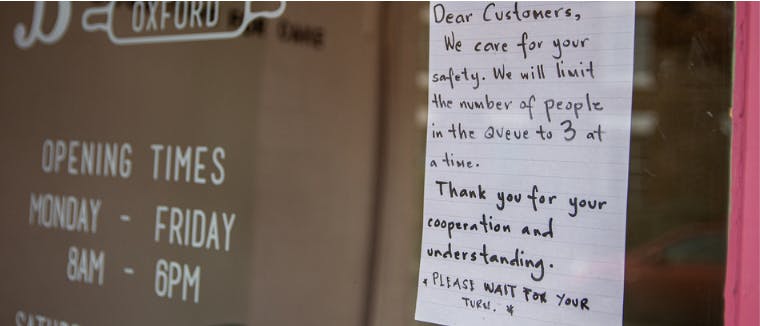 B
OXFORD
OPENING TIMES
MONDAY - FRIDAY
8AM - 6PM
Dear Customers,
We care for your
safety. We will limit
the number of people
in the Queue to 3 at
a time.
Thank you for your
cooperation and
understanding.
* PLEASE WAIT FOR YOUR
TURN. *